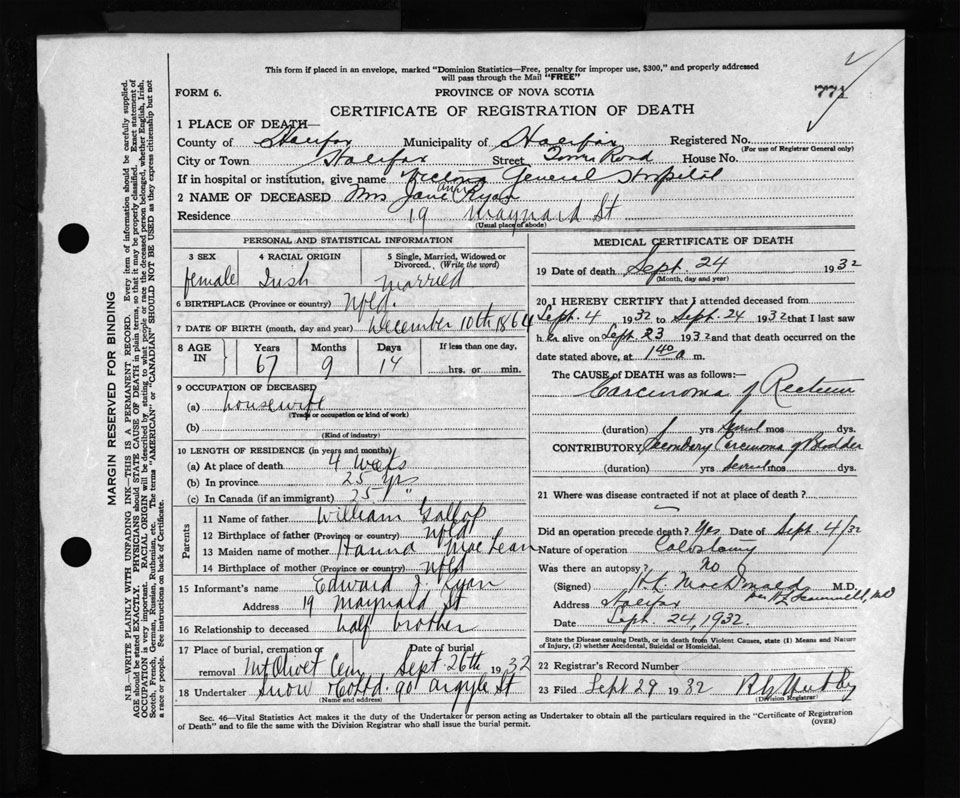 This form if placed in an envelope, marked "Dominion Statistics—Free, penalty for improper use, $300," and properly addressed
will pass through the Mail "FREE"
FORM 6.
PROVINCE OF NOVA SCOTIA
772
CERTIFICATE OF REGISTRATION OF DEATH
1 PLACE OF DEATH—
County of Halifax Municipality of Halifax Registered No.
(For use of Registrar General only)
City or Town Halifax Street Tower Road House No.
If in hospital or institution, give name Victoria General Hospital
2 NAME OF DECEASED Mrs Jane Ann Ryan
Residence 19 Maynard St
(Usual place of abode)
PERSONAL AND STATISTICAL INFORMATION
3 SEX 4 RACIAL ORIGIN 5 Single, Married, Widowed or
Divorced. (Write the word)
female Irish Married
6 BIRTHPLACE (Province or country) Nfld.
7 DATE OF BIRTH (month, day and year) December 10th 1864
8 AGE IN Years Months Days If less than one day,
67 9 14 hrs. or min.
9 OCCUPATION OF DECEASED
(a) housewife
(Trade or occupation or kind of work)
(b)
(Kind of industry)
10 LENGTH OF RESIDENCE (in years and months)
(a) At place of death 4 weeks
(b) In province 25 yrs
(c) In Canada (if an immigrant) 25 "
Parents
11 Name of father William Gallop
12 Birthplace of father (Province or country) Nfld
13 Maiden name of mother Hanna MacLean
14 Birthplace of mother (Province or country) Nfld
15 Informant's name Edward J. Ryan
Address 19 Maynard St
16 Relationship to deceased half brother
17 Place of burial, cremation or removal Date of burial
Mt Olivet Cem Sept 26th 1932
18 Undertaker Snow & Co Ltd. 90 Argyle St
(Name and address)
MEDICAL CERTIFICATE OF DEATH
19 Date of death Sept. 24 1932
(Month, day and year)
20 I HEREBY CERTIFY that I attended deceased from
Sept. 4 1932 to Sept. 24 1932 that I last saw
h er alive on Sept. 23 1932 and that death occurred on the
date stated above, at 1 40 a m.
The CAUSE OF DEATH was as follows:—
Carcinoma of Rectum
(duration) yrs several mos dys.
CONTRIBUTORY Secondary Carcinoma of Bladder
(duration) yrs several mos dys.
21 Where was disease contracted if not at place of death?
Did an operation precede death? yes Date of Sept. 4/32
Nature of operation Colostomy
Was there an autopsy? no
(Signed) MacDonald M.D.
Address Halifax
Date Sept. 24, 1932.
State the Disease causing Death, or in death from Violent Causes, state (1) Means and Nature
of Injury, (2) whether Accidental, Suicidal or Homicidal.
22 Registrar's Record Number
23 Filed Sept 29 1932
(Division Registrar)
Sec. 46—Vital Statistics Act makes it the duty of the Undertaker or person acting as Undertaker to obtain all the particulars required in the "Certificate of Registration
of Death" and to file the same with the Division Registrar who shall issue the burial permit.
(OVER)
MARGIN RESERVED FOR BINDING
N.B.—WRITE PLAINLY WITH UNFADING INK—THIS IS A PERMANENT RECORD. Every item of information should be carefully supplied.
AGE should be stated EXACTLY. PHYSICIANS should STATE CAUSE OF DEATH in plain terms, so that it may be properly classified. Exact statement of
OCCUPATION is very important. RACIAL ORIGIN will be described by stating to what people or race the deceased person belonged, whether English, Irish,
Scotch, French, German, Russian, Ruthenian, etc. The terms "AMERICAN" or "CANADIAN" SHOULD NOT BE USED as they express citizenship but not
a race or people. See instructions on back of Certificate.